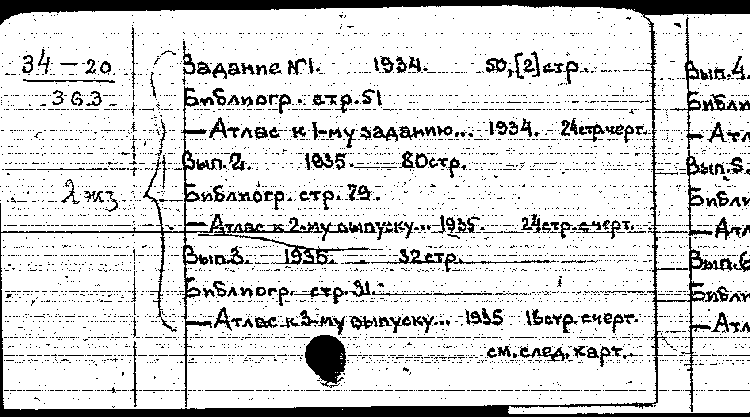 34-20
363
2 экз
Задание №1. 1934. 50,[2] стр.
Библиогр. стр. 51
— Атлас к 1-му заданию... 1934. 24 стр. черт.
Вып. 2. 1935. 80 стр.
Библиогр. стр. 79.
— Атлас к 2-му выпуску... 1935. 24 стр. с черт.
Вып. 3. 1935. 32 стр.
Библиогр. стр. 31.
— Атлас к 3-му выпуску... 1935 16 стр. с черт.
см. след. карт.
Вып. 4.
Библи
— Атл
Вып. 5.
Библи
— Атл
Вып. 6
Библи
— Атл